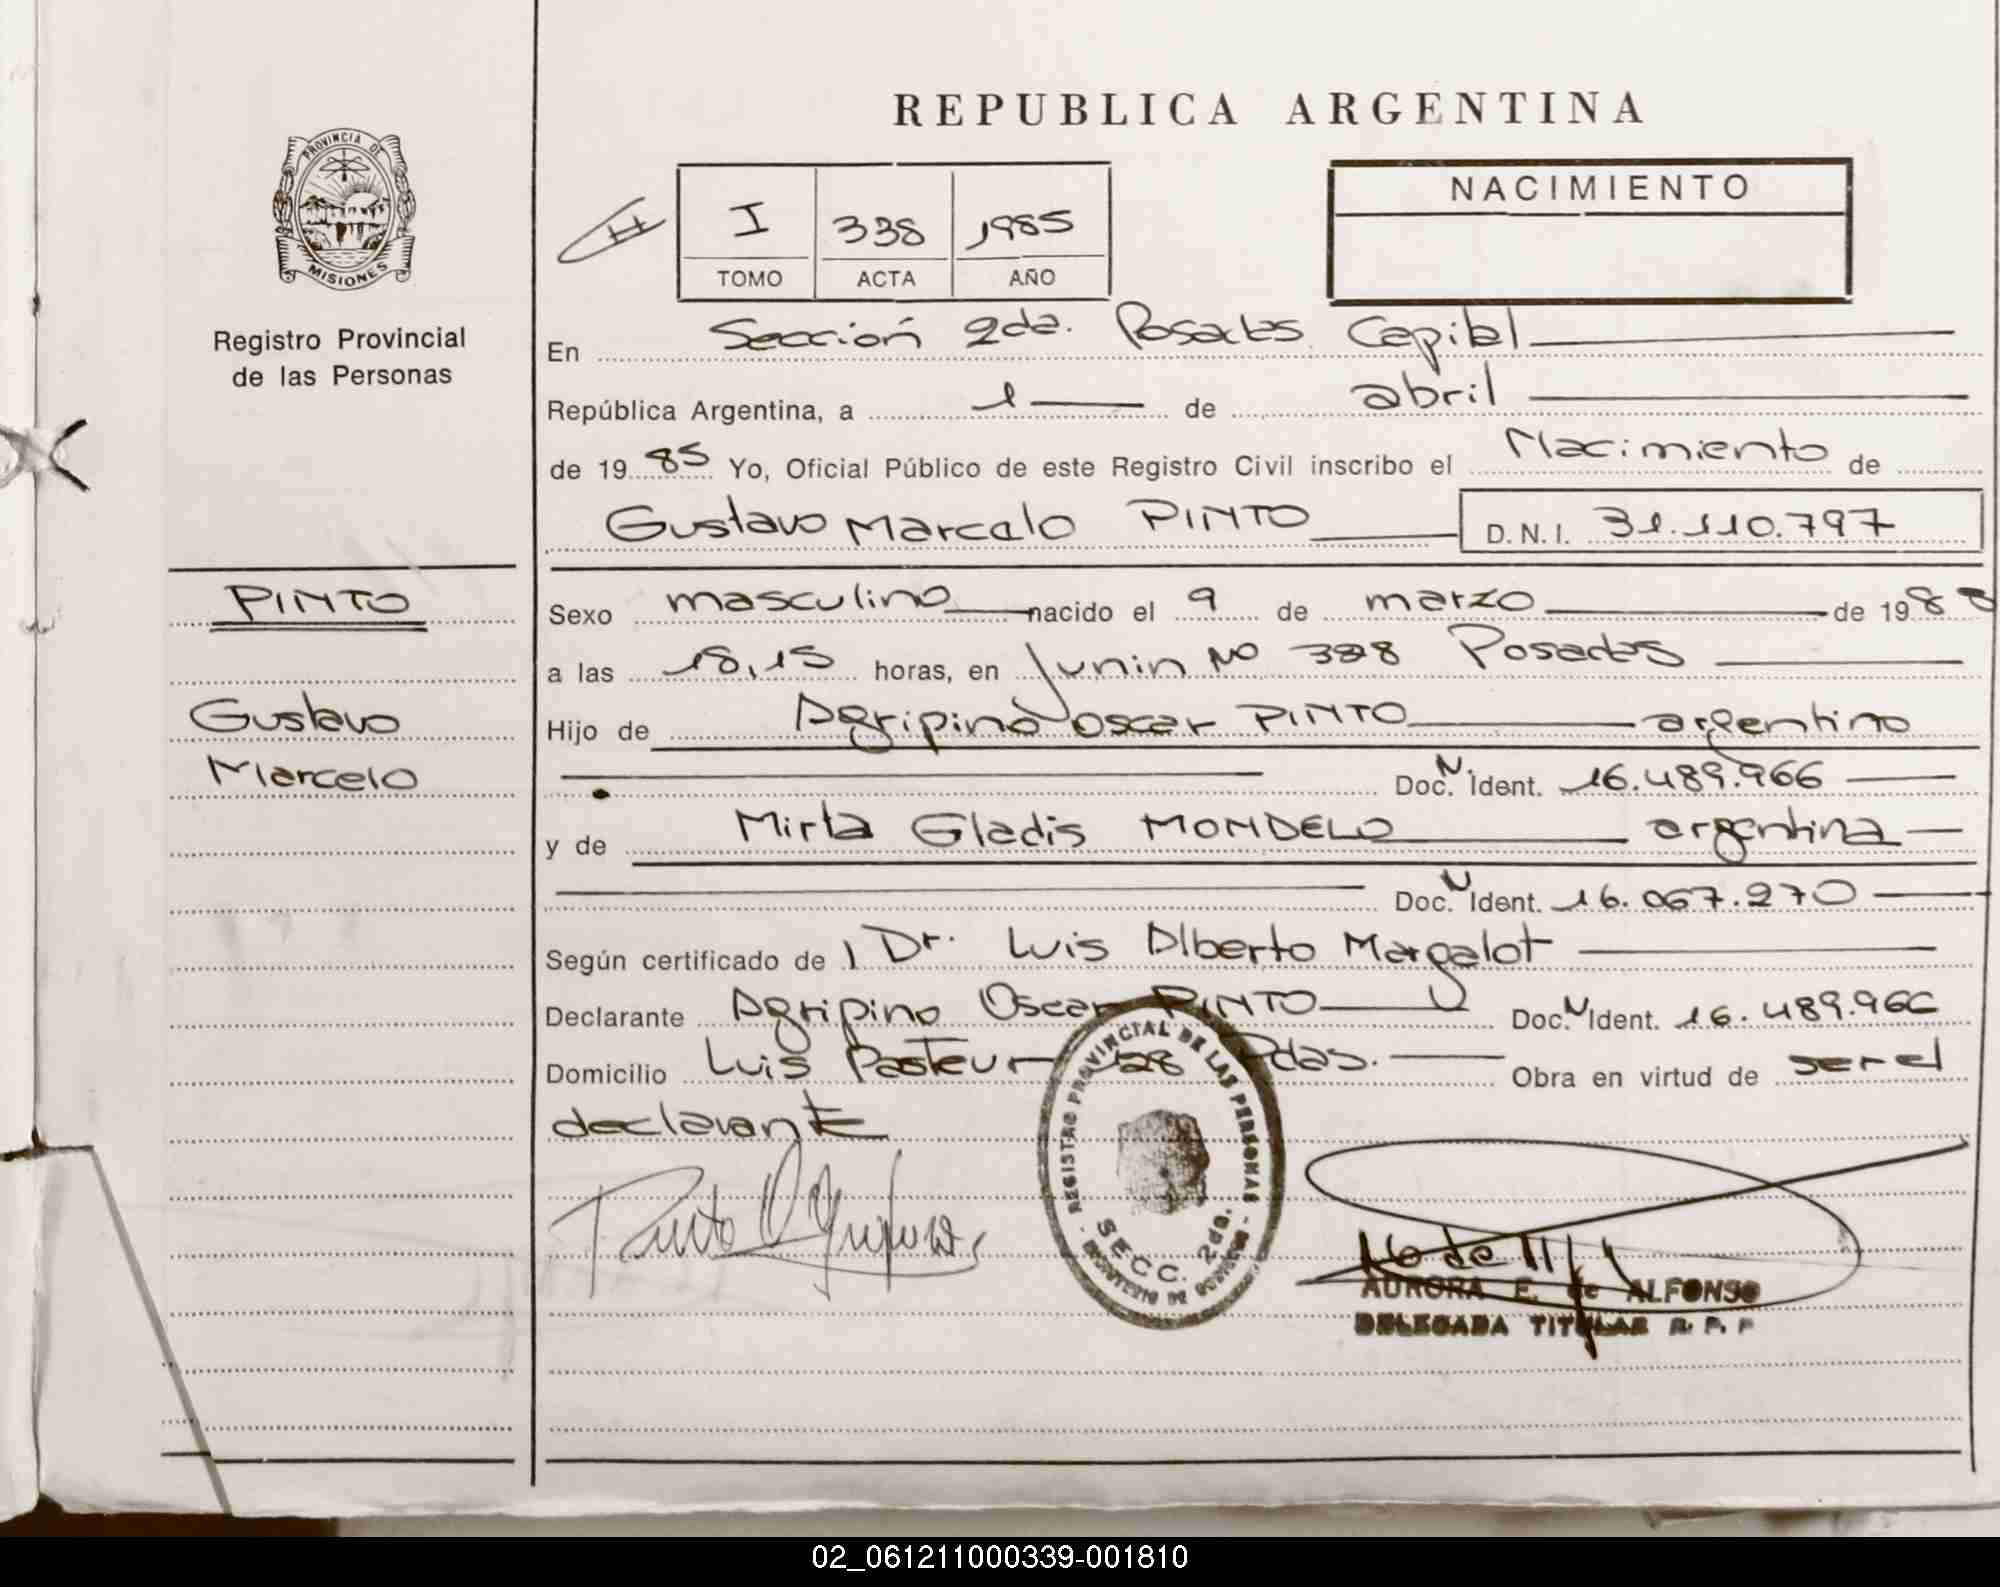 REPUBLICA ARGENTINA
PROVINCIA DE
MISIONES
Registro Provincial
de las Personas
H
I 338 1985
TOMO ACTA AÑO
NACIMIENTO
En Sección 2da. Posadas Capital
República Argentina, a 1 de abril
de 1985 Yo, Oficial Público de este Registro Civil inscribo el Nacimiento de
Gustavo Marcelo PINTO D.N.I. 31.110.797
PINTO
Gustavo
Marcelo
Sexo masculino nacido el 9 de marzo de 198
a las 18,15 horas, en Junin No 328 Posadas
Hijo de Agripino Oscar PINTO argentino
Doc. N Ident. 16.489.966
y de Mirta Gladis MONDELO argentina
Doc. N Ident. 16.067.270
Según certificado de l Dr. Luis Alberto Margalot
Declarante Agripino Oscar PINTO Doc. N Ident. 16.489.966
Domicilio Luis Pasteur Pdas. Obra en virtud de ser el
declarante
REGISTRO PROVINCIAL DE LAS PERSONAS
SECC. 2da.
MINISTERIO DE GOBIERNO
Pinto
AURORA E. de ALFONSO
DELEGADA TITULAR R. P. P
02_061211000339-001810